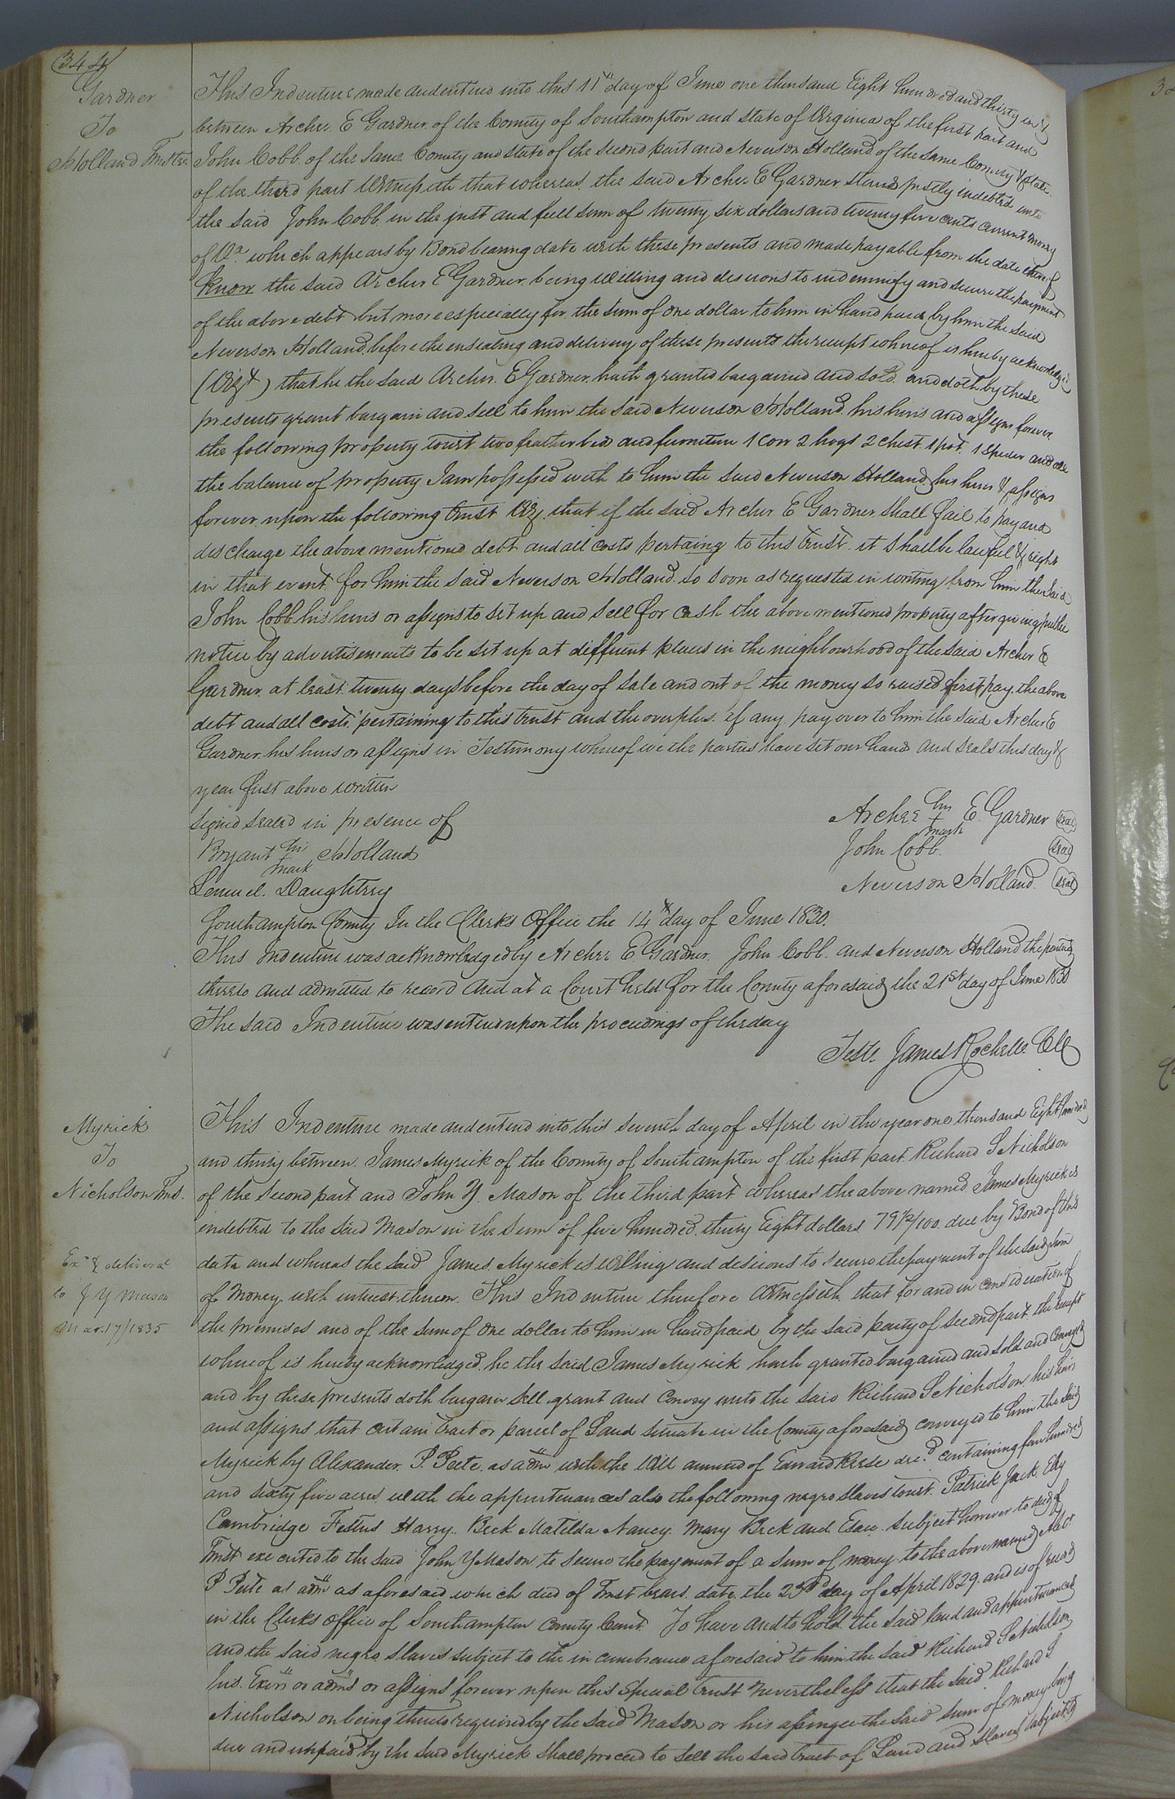 344
Gardner
To
Holland Trustee
This Indenture made and entered into this 11th day of June one thousand Eight hundred and thirty
between Archer E Gardner of the County of Southampton and State of Virginia of the first part and
John Cobb of the same County and state of the second part and Neverson Holland of the same County & state
of the third part Witnesseth that whereas the said Archer E Gardner stands justly indebted unto
the said John Cobb in the just and full sum of twenty six dollars and twenty five cents current money
of Va. which appears by Bond bearing date with these presents and made payable from the date thereof
Know the said Archer E Gardner being Willing and desirous to indemnify and secure the payment
of the above debt but more especially for the sum of one dollar to him in hand paid by him the said
Neverson Holland before the ensealing and delivery of these presents the receipt whereof is hereby acknowledged
(Vizt) that he the said Archer E Gardner hath granted bargained and sold and doth by these
presents grant bargain and sell to him the said Neverson Holland his heirs and assigns forever
the following property towit two feather bed and furniture 1 Cow 2 hogs 2 chest 1 pot 1 and
the balance of property I am possessed with to him the said Neverson Holland his heirs & assigns
forever upon the following trust Viz. that if the said Archer E Gardner shall fail to pay and
discharge the above mentioned debt and all costs pertaing to this trust it shall be lawful & right
in that event for him the said Neverson Holland so soon as requested in writing from him the said
John Cobb his heirs or assigns to set up and sell for cash the above mentioned property after giving public
notice by advertisements to be set up at different places in the neighbourhood of the said Archer E
Gardner at least twenty days before the day of sale and out of the money so raised first pay the above
debt and all costs pertaining to this trust and the overplus if any pay over to him the said Archer E
Gardner his heirs or assigns in Testimony whereof we the parties have set our hand and seals this day &
year first above written
signed sealed in presence of
Archer his + mark E. Gardner (Seal)
Bryant his + mark Holland
John Cobb (Seal)
Lemuel Daughtrey
Neverson Holland (Seal)
Southampton County In the Clerks Office the 14th day of June 1830.
This Indenture was acknowledged by Archer E Gardner, John Cobb and Neverson Holland the parties
thereto and admitted to record And at a Court held for the County aforesaid the 21st day of June 1830
The said Indenture was entered upon the proceedings of the day
Teste James Rochelle Clk
Myrick
To
Nicholson Trus.
Exd & delivered
to J Y Mason
Mar. 17/1835
This Indenture made and entered into this seventh day of April in the year one thousand Eight hundred
and thirty between James Myrick of the County of Southampton of the first part Richard S Nicholson
of the second part and John Y Mason of the third part whereas the above named James Myrick is
indebted to the said Mason in the sum of five hundred thirty Eight dollars due by Bond of this
date and whereas the said James Myrick is willing and desirous to secure the payment of the said sum
of money with interest thereon. This Indenture therefore Witnesseth that for and in consideration of
the premises and of the sum of one dollar to him in hand paid by the said party of second part the receipt
whereof is hereby acknowledged, he the said James Myrick hath granted bargained and sold and conveyed
and by these presents doth bargain sell grant and convey unto the said Richard S Nicholson his heirs
and assigns that certain tract or parcel of Land situate in the County aforesaid conveyed to him the said
Myrick by Alexander P. Peete as admr with the Will annexed of Edward decd. containing four hundred
and sixty five acres with the appurtenances also the following negro slaves towit. Patrick Jack
Cambridge Festus Harry Beck Matilda Nancy Mary Beck and Esau subject however to deed of
Trust executed to the said John Y Mason to secure the payment of a sum of money to the above named Alexr
P Peete as admr as aforesaid which deed of Trust bears date the 23rd day of April 1829 and is of record
in the Clerks office of Southampton County Court To have and to hold the said land and appurtenances
and the said negro slaves subject to the incumbrance aforesaid to him the said Richard S Nicholson
his Exors or admrs or assigns forever upon this Special trust Nevertheless that the said Richard S
Nicholson on being thereto required by the said Mason or his assignee the said sum of money being
due and unpaid by the said Myrick shall proceed to sell the said tract of Land and Slaves subject